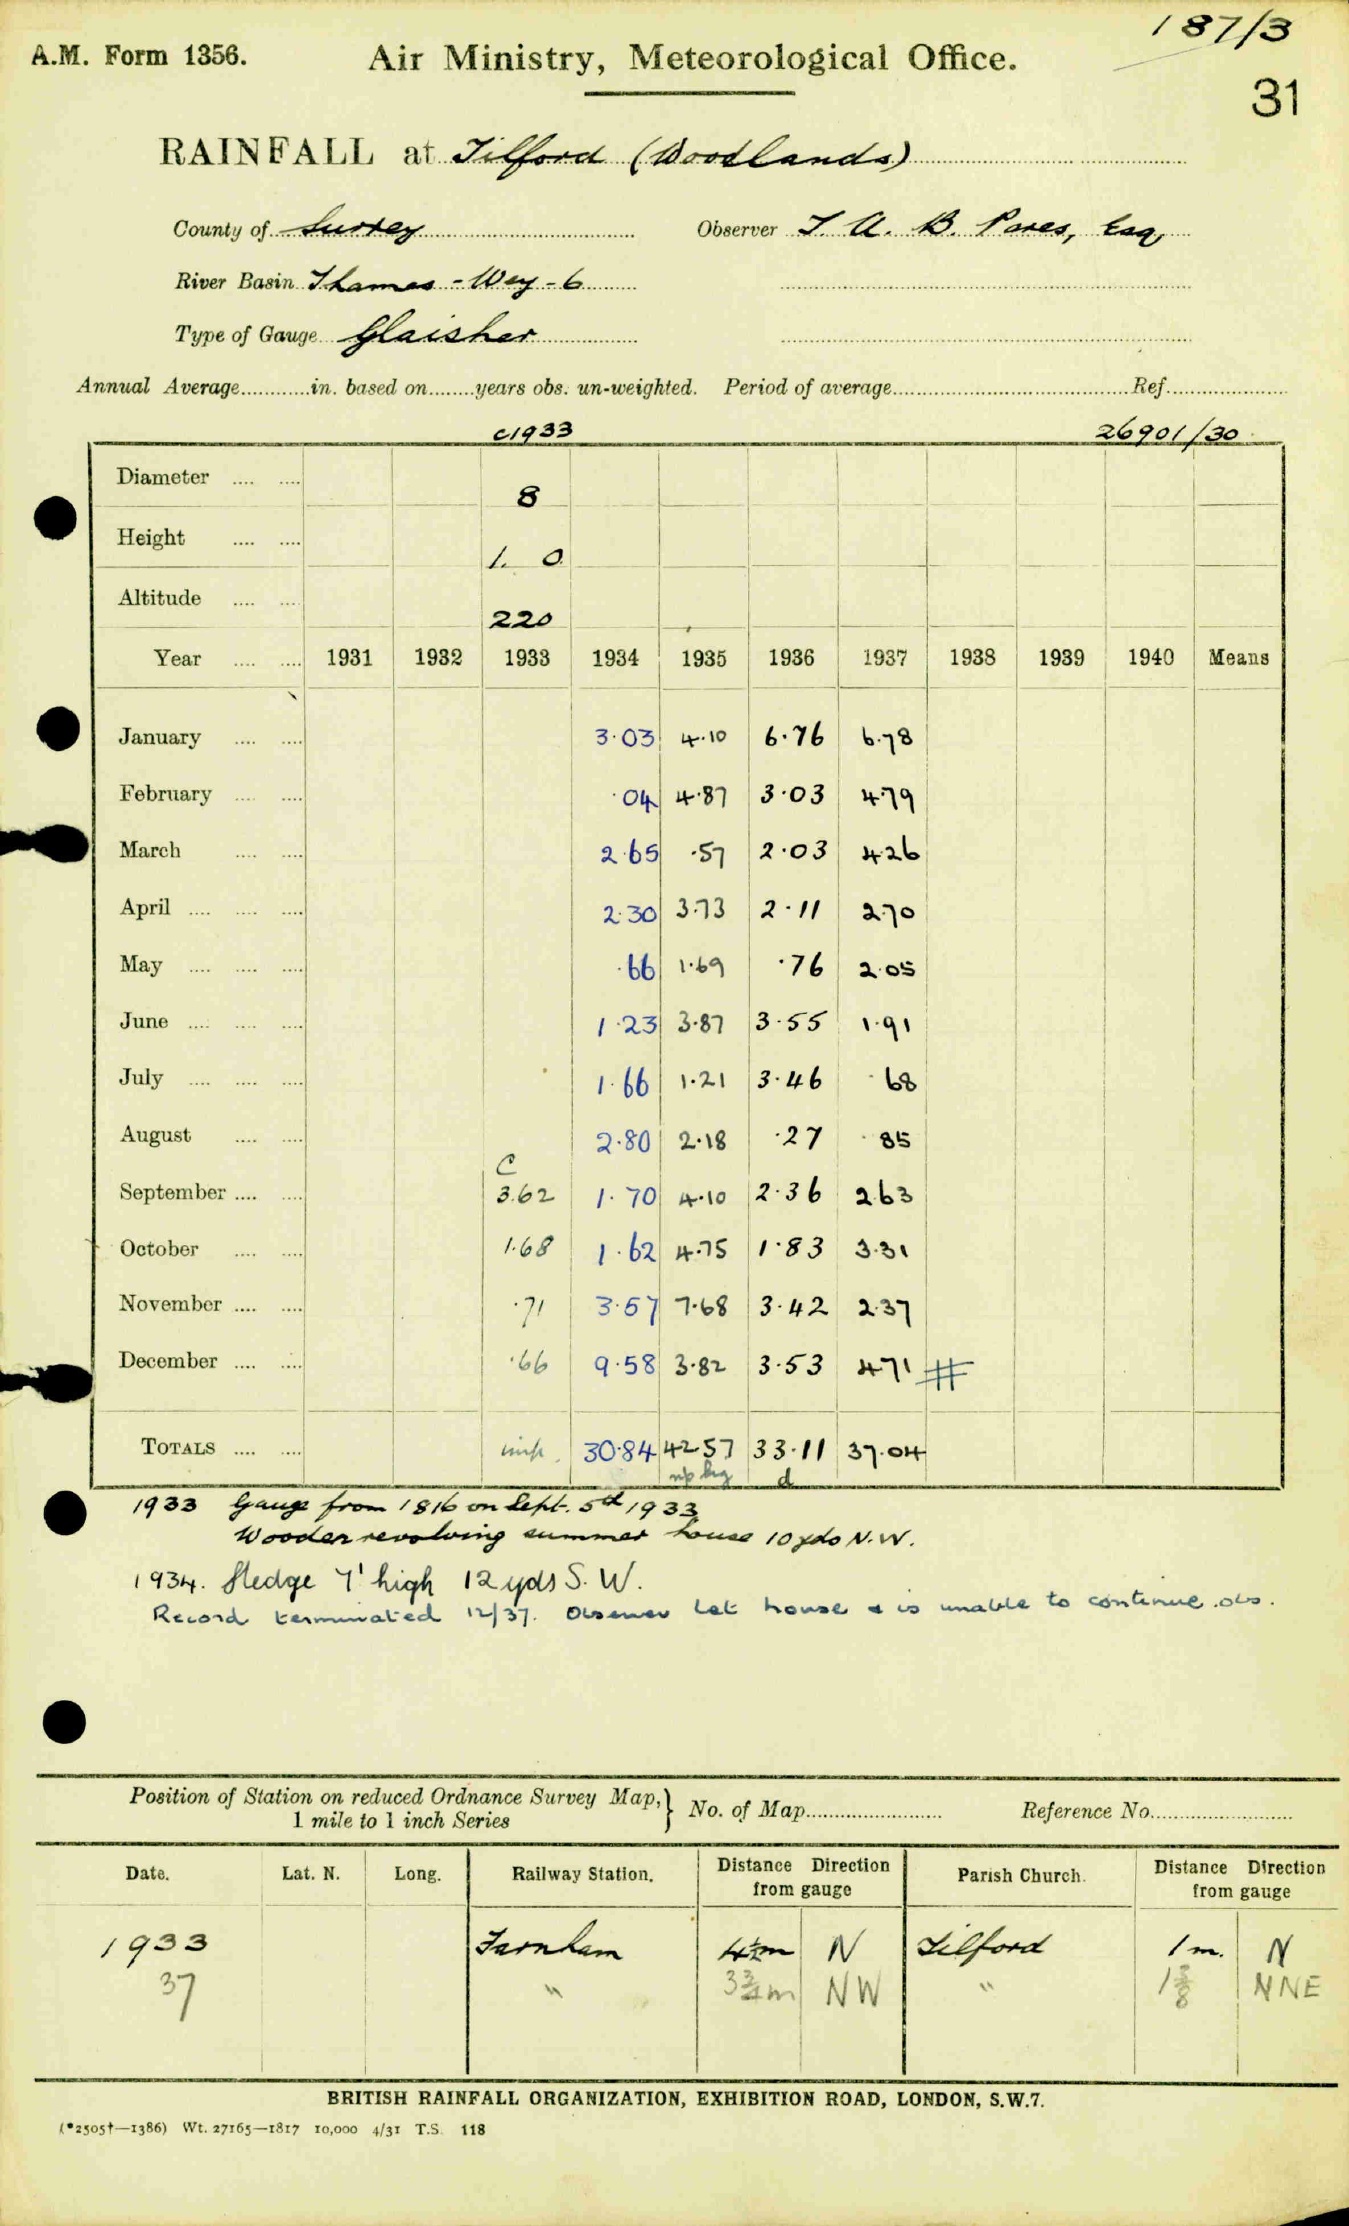 187/3
A.M. Form 1356. Air Ministry, Meteorological Office.
31
RAINFALL at Tilford (Woodlands)
County of Surrey Observer T. A. B. Pares, Esq.
River Basin Thames - Wey - 6
Type of Gauge Glaisher
Annual Average in. based on years obs. un-weighted. Period of average Ref.
c1933 26901/30
Diameter 8
Height 1. 0
Altitude 220
Year 1931 1932 1933 1934 1935 1936 1937 1938 1939 1940 Means
January 3.03 4.10 6.76 6.78
February .04 4.87 3.03 4.79
March 2.65 .57 2.03 4.26
April 2.30 3.73 2.11 2.70
May .66 1.69 .76 2.05
June 1.23 3.87 3.55 1.91
July 1.66 1.21 3.46 .68
August 2.80 2.18 .27 .85
C
September 3.62 1.70 4.10 2.36 2.63
October 1.68 1.62 4.75 1.83 3.31
November .71 3.57 7.68 3.42 2.37
December .66 9.58 3.82 3.53 4.71 #
TOTALS imp. 30.84 42.57 33.11 37.04
d
1933 Gauge from 1816 on Sept. 5th 1933
Wooden revolving summer house 10 yds N.W.
1934. Hedge 7' high 12 yds S.W.
Record terminated 12/37. Observer let house & is unable to continue obs.
Position of Station on reduced Ordnance Survey Map, } No. of Map Reference No.
1 mile to 1 inch Series
Date. Lat. N. Long. Railway Station. Distance Direction from gauge Parish Church. Distance Direction from gauge
1933 Farnham 4½m N Tilford 1 m. N
37 " 3¾m NW " 1⅜ NNE
BRITISH RAINFALL ORGANIZATION, EXHIBITION ROAD, LONDON, S.W.7.
(*2505†—1386) Wt. 27165—1817 10,000 4/31 T.S. 118